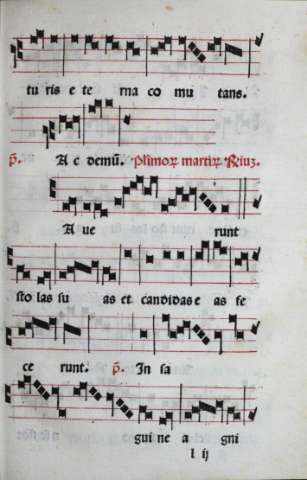 tu ris e te rna co mu tans.
p̃. A c demũ. plīmoꝝ martiꝝ Riuz.
A ue runt
sto las su as et candidas e as fe
ce runt. p̃. In sa
gui ne a gni
l ij